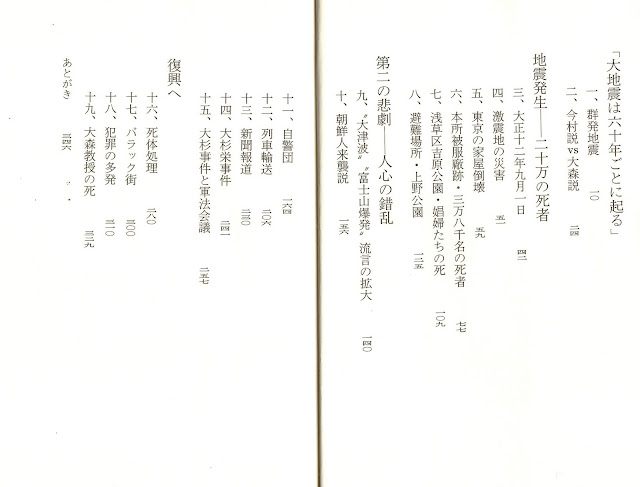 「大地震は六十年ごとに起る」
一、群発地震 一〇
二、今村説vs大森説 二四
地震発生——二十万の死者
三、大正十二年九月一日 四二
四、激震地の災害 五一
五、東京の家屋倒壊 五九
六、本所被服廠跡・三万八千名の死者 七七
七、浅草区吉原公園・娼婦たちの死 一〇九
八、避難場所・上野公園 一二五
第二の悲劇——人心の錯乱
九、〝大津波〟〝富士山爆発〟流言の拡大 一四〇
十、朝鮮人来襲説 一五六
十一、自警団 一六四
十二、列車輸送 二〇六
十三、新聞報道 二二〇
十四、大杉栄事件 二四一
十五、大杉事件と軍法会議 二五七
復興へ
十六、死体処理 二八〇
十七、バラック街 三〇〇
十八、犯罪の多発 三一〇
十九、大森教授の死 三二九
あとがき 三四六